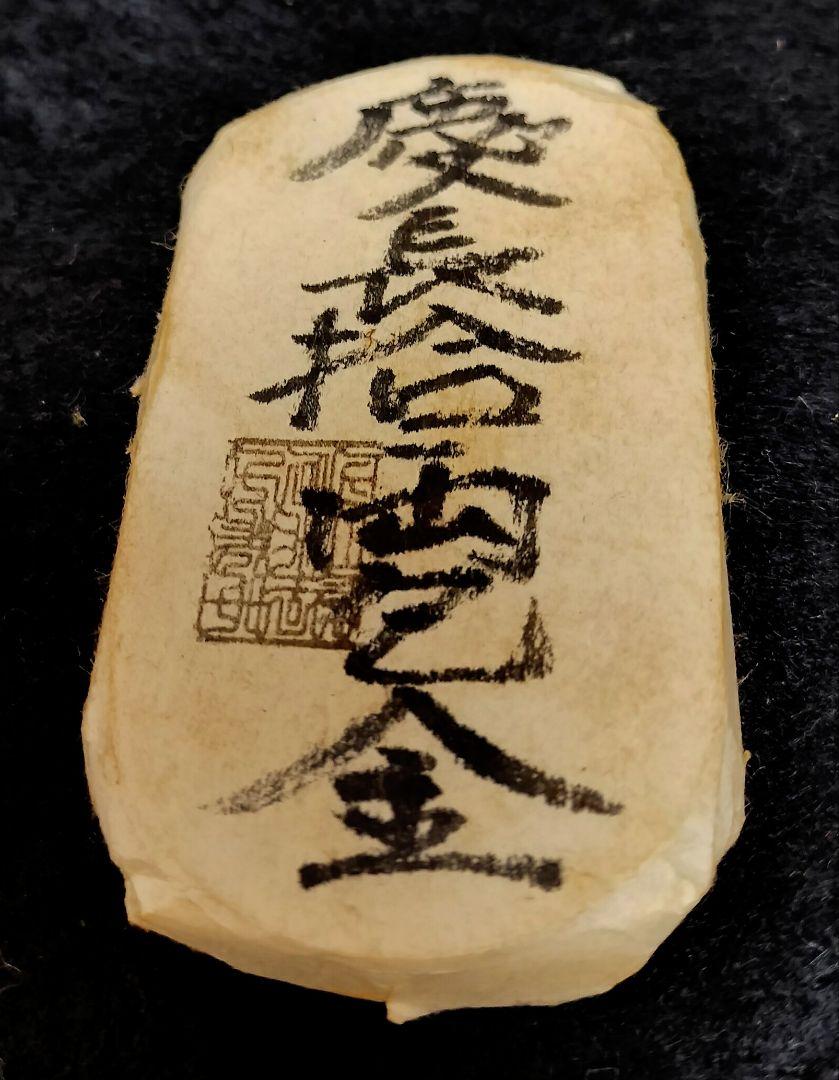 慶長拾両包金